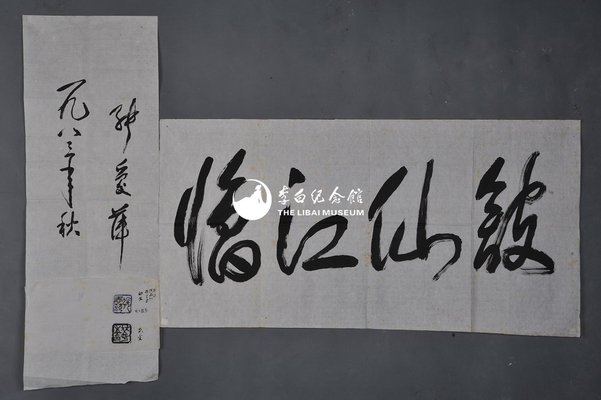 临江仙馆
张爱萍
一九八三年秋
李白纪念馆
THE LIBAI MUSEUM